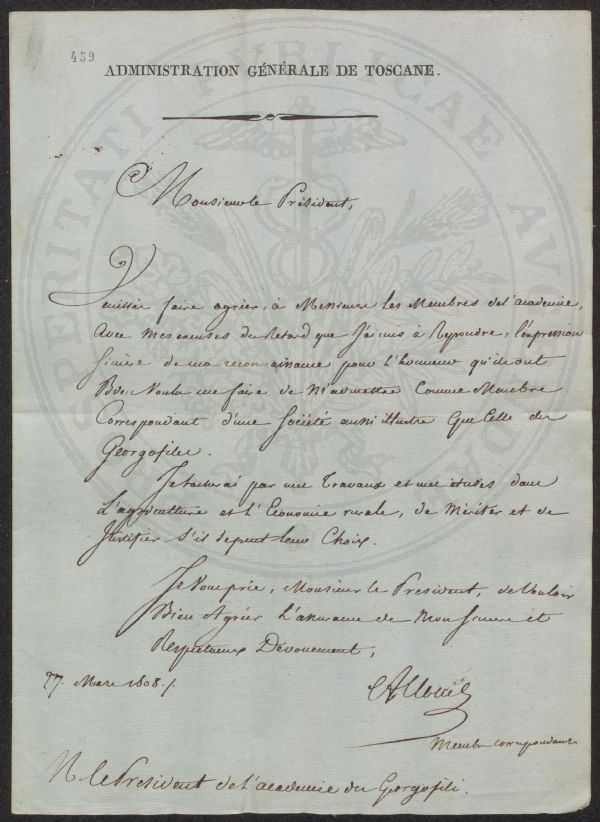 459
ADMINISTRATION GÉNÉRALE DE TOSCANE.
Monsieur le Président,
Veuillez faire agréer, à Messieurs les Membres de l'academie,
Avec mes excuses du Retard que J'ai mis à Repondre, l'expression
sincère de ma reconnaissance pour l'honneur qu'ils ont
Bien Voulu me faire de M'admettre Comme Membre
Correspondant d'une Société aussi illustre Que Celle des
Georgofili.
Je tacherai par mes Travaux et mes études dans
L'agriculture et l'Economie rurale, de Mériter et de
Justifier s'il se peut leur Choix.
Je Vous prie, Monsieur le President, de Vouloir
Bien Agréer L'assurance de Mon Sincere et
Respectueux Dévouement,
27. Mars 1808.
Membre correspondant
M. le President de l'academie des Georgofili.
PROSPERITATI PUBLICAE AUGENDAE